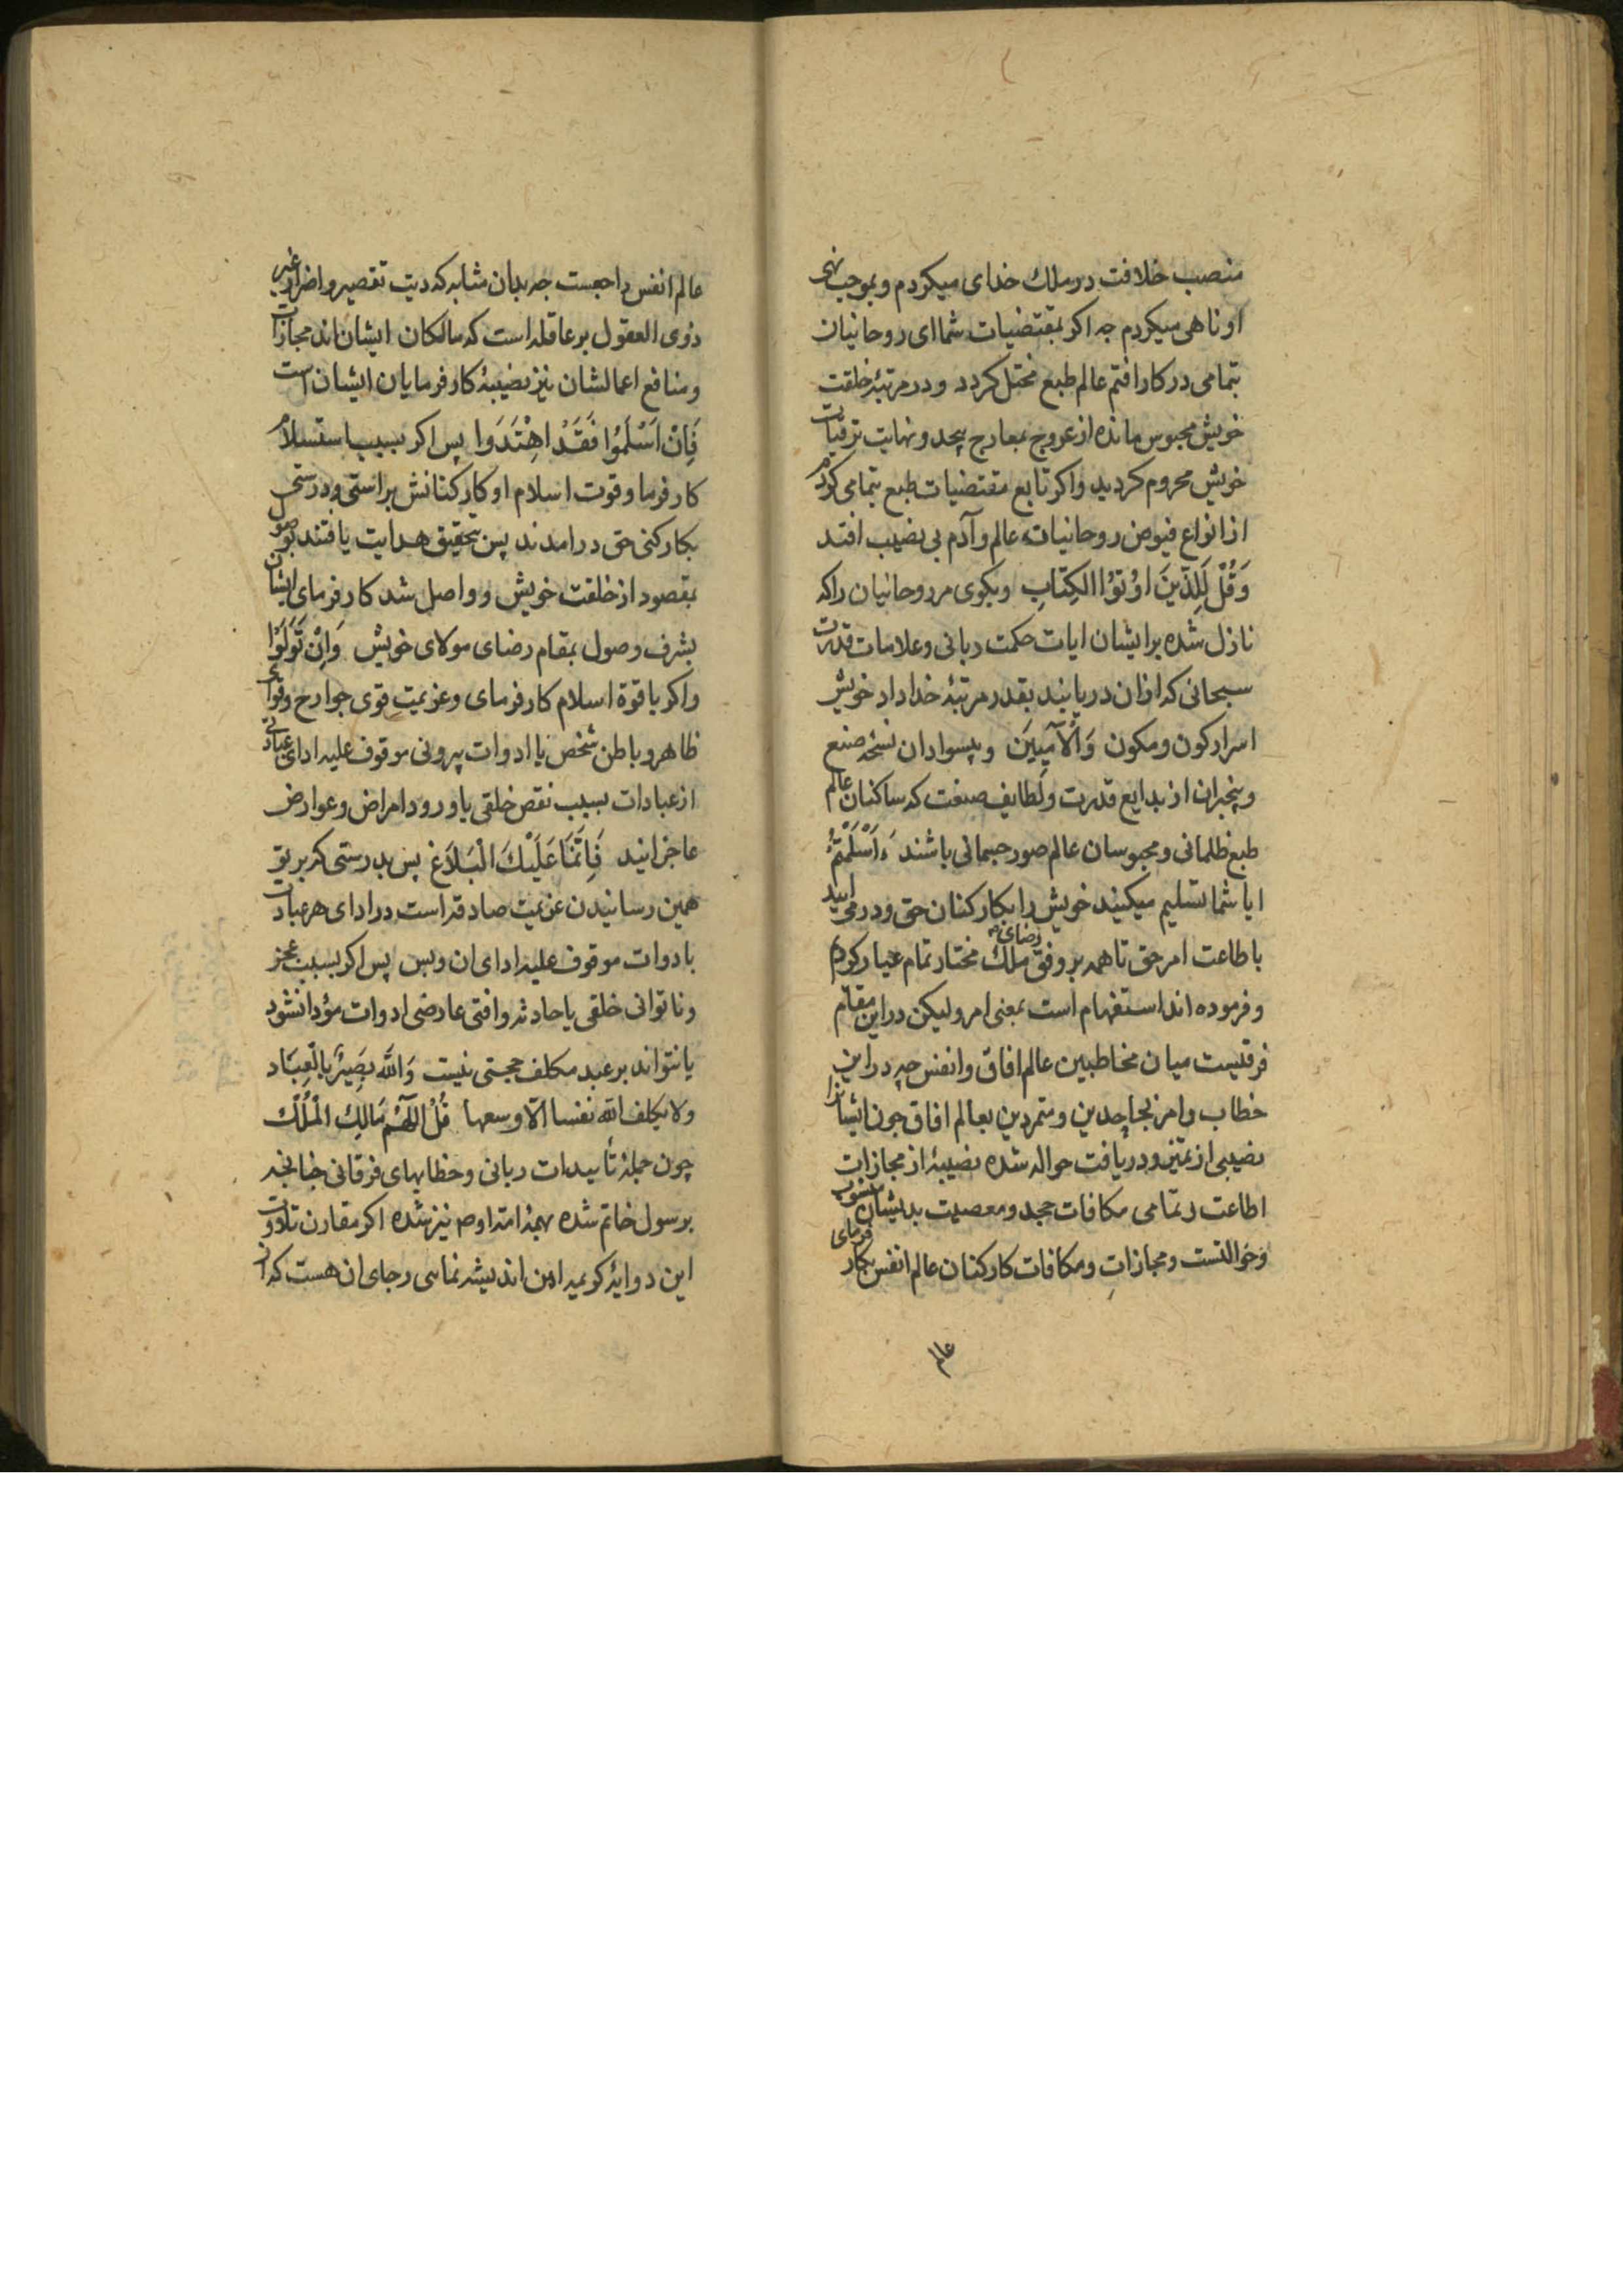 منصب خلافت در ملك خدای میکردم و بموجب نهی
او ناهی میکردم چه اکر بمقتضیات شما ای روحانیان
بتمامی در کار افتم عالم طبع مختل کردد و در مرتبهٔ خلقت
خویش محبوس مانده از عروج بمعارج بیحد و نهایت ترقیات
خویش محروم کردید و اکر تابع مقتضیات طبع بتمامی کردم
از انواع فیوض روحانیات عالم و آدم بی نصیب افتد
وَقُلْ لِلَّذِینَ اُوْتُوْا الْکِتَابِ وبکوی مر روحانیان را که
نازل شده بر ایشان ایات حکمت ربانی و علامات قدرت
سبحانی که ازان دریابند بقدر مرتبهٔ خداداد خویش
اسرار کون و مکون وَالْاُمِّیِیّنَ و بیسوادان نسخهٔ صنع
و بیخبران از بدایع قدرت و لطایف صنعت که ساکنان عالم
طبع ظلمانی و محبوسان عالم صور جسمانی باشند ءَاَسْلَمْتُمْ
ایا شما تسلیم میکنید خویش را بکارکنان حق و در می ایید
باطاعت امر حق تا همه بر وفق رضای ملك مختار تمام عیار کردم
و فرموده اند استفهام است بمعنی امر و لیکن دراین مقام
فرقیست میان مخاطبین عالم افاق و انفس چه در این
خطاب و امر بجاحدین و متمردین بعالم افاق چون ایشانرا
نصیبی از تمیز و دریافت حواله شده نصیبهٔ از مجازات
اطاعت و تمامی مکافات جحد و معصیت بدیشان منسوب
و حوالتست و مجازاتِ و مکافات کارکنان عالم انفس بکار فرمای
عالم
عالم انفس راجعست چه بدان مشابه که دیت تقصیر و اضرار غیر
ذوی العقول بر عاقله است که مالکان ایشان اند مجازات
و منافع اعمالشان نیز نصیبهٔ کارفرمایان ایشان است
فَاِنْ اَسْلَمُوْا فَقَدْ اهْتَدَوا پس اکر بسبب استسلام
کارفرما و قوت اسلام او کارکنانش براستی و درستی
بکارکنی حق درامدند پس بتحقیق هدایت یافتند بوصول
بمقصود از خلقت خویش و واصل شد کارفرمای ایشان
بشرف وصول بمقام رضای مولای خویش وَاِنْ تَوَلَوْا
واکر با قوة اسلام کارفرمای و عزیمت قوی جوارح و قوای
ظاهر و باطن شخص یا ادوات بیرونی موقوف علیه ادای عبادتی
از عبادات بسبب نقص خلقی یا ورود امراض و عوارض
عاجز ایند فَاِنَّمَا عَلَیْكَ الْبَلَاغ پس بدرستی که بر تو
همین رسانیدن عزیمت صادقه است در ادای هر عبادت
بادوات موقوف علیه ادای ان و بس پس اکر بسبب عجز
و ناتوانی خلقی یا حادثه و افتی عارضی ادوات مؤدا نشود
یا نتواند بر عبد مکلف حجتی نیست وَاللّٰه بَصِیْرٌ بِالْعِبَاد
ولا یکلف الله نفسا الّا وسعها قُلْ اللّٰهُمَّ مَالِكَ الْمُلْك
چون جملهٔ تأییدات ربانی و خطابهای فرقانی چنانچه
برسول خاتم شده بهمهٔ امتداوم نیز شده اکر مقارن تلاوت
این دو ایهٔ کریمه این اندیشه نمایی رجای ان هست که از